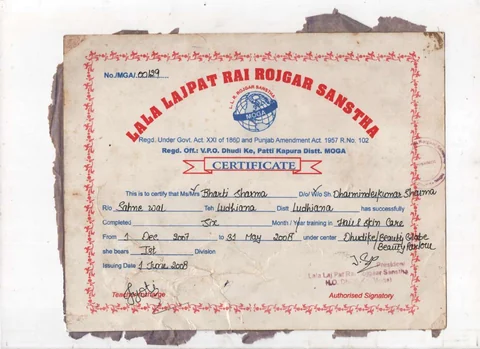 No./MGA/.00129
LALA LAJPAT RAI ROJGAR SANSTHA
L.L.R. ROJGAR SANSTHA
MOGA
Regd. Under Govt. Act. XXI of 1860 and Punjab Amendment Act. 1957 R.No. 102
Regd. Off.: V.P.O. Dhudi Ke, Patti Kapura Distt. MOGA
CERTIFICATE
This is to certify that Ms/Mrs Bharti Sharma D/o/ W/o Sh. Dharminder Kumar Sharma
R/o Sahno Wal Teh Ludhiana Distt Ludhiana has successfully
Completed Six Month / Year training in Hair & Skin Care
From 1 Dec 2007 to 31 May 2008 under center Dhudike/Beauty Globe
/Beauty Parlour
she bears Ist Division
Issuing Date 1 June 2008
President
Lala Laj Pat Rai Rojgar Sanstha
H.O.
Jyoti
Authorised Signatory